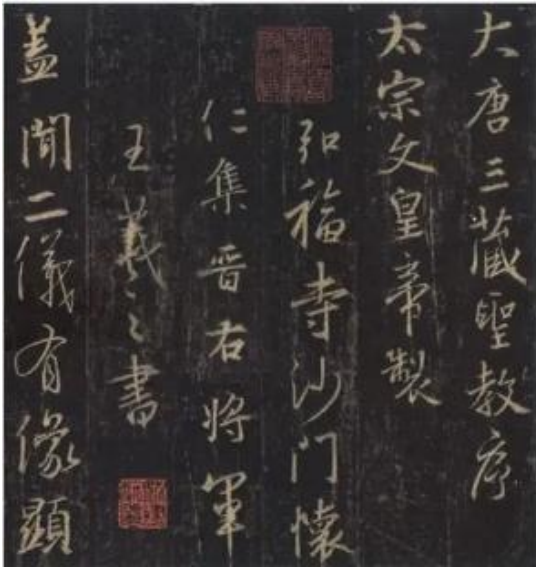 大唐三藏聖教序
太宗文皇帝製
弘福寺沙门懷
仁集晋右將軍
王羲之書
盖聞二儀有像顯